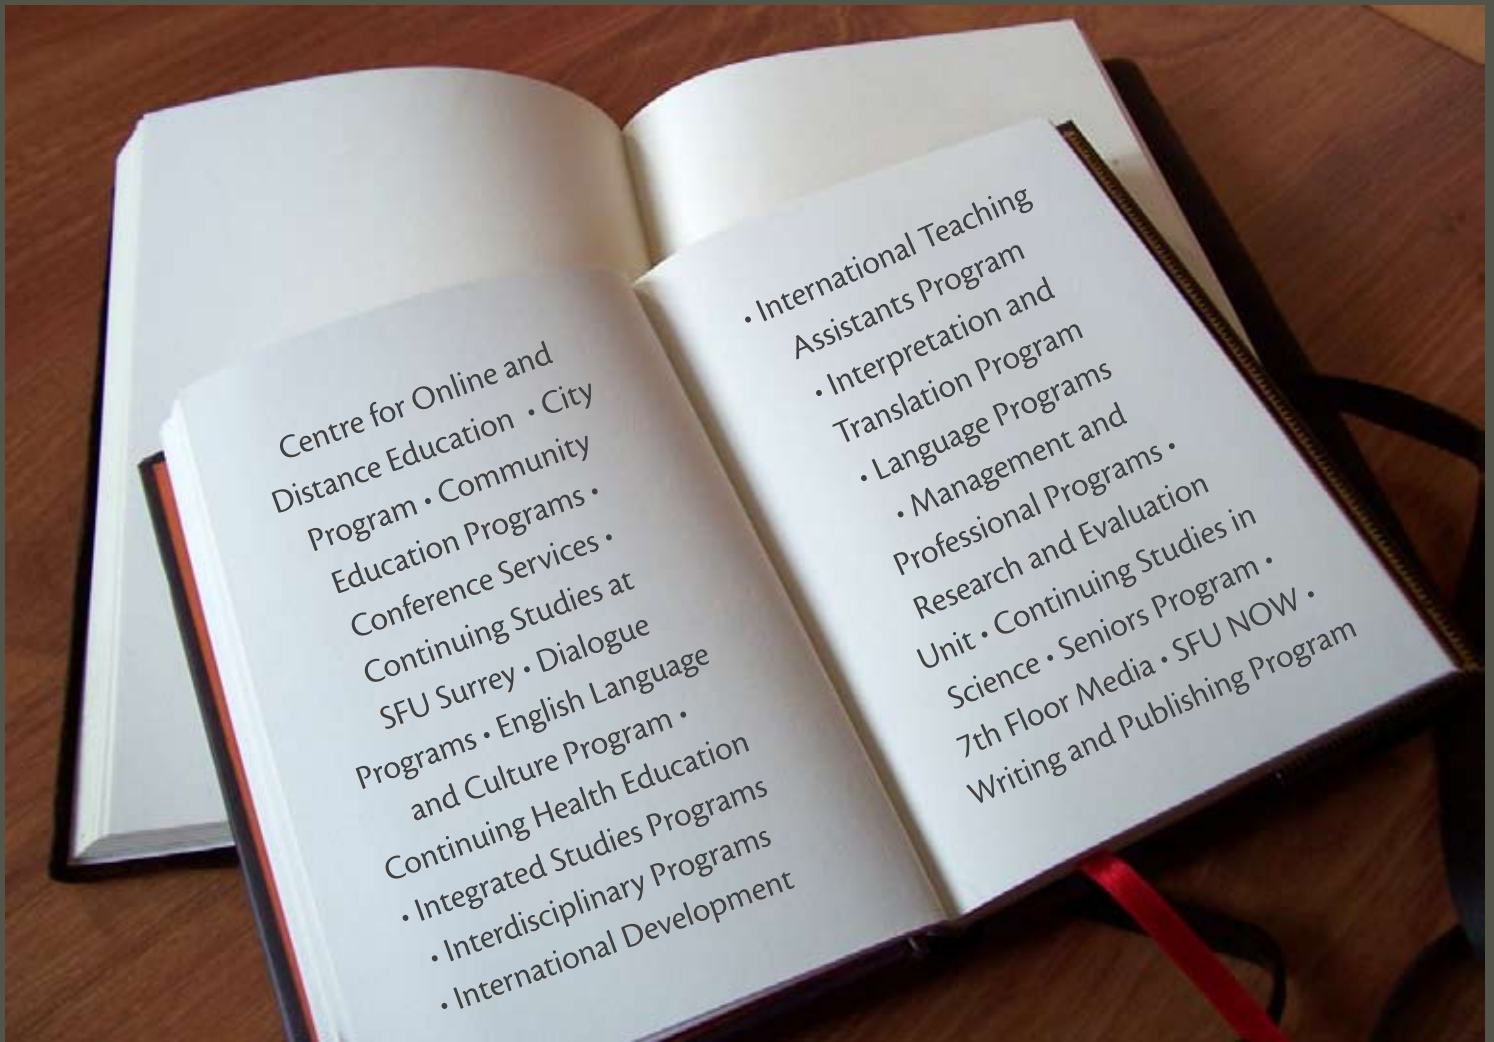 Centre for Online and
Distance Education • City
Program • Community
Education Programs •
Conference Services •
Continuing Studies at
SFU Surrey • Dialogue
Programs • English Language
and Culture Program •
Continuing Health Education
• Integrated Studies Programs
• Interdisciplinary Programs
• International Development
• International Teaching
Assistants Program
• Interpretation and
Translation Program
• Language Programs
• Management and
Professional Programs •
Research and Evaluation
Unit • Continuing Studies in
Science • Seniors Program •
7th Floor Media • SFU NOW •
Writing and Publishing Program